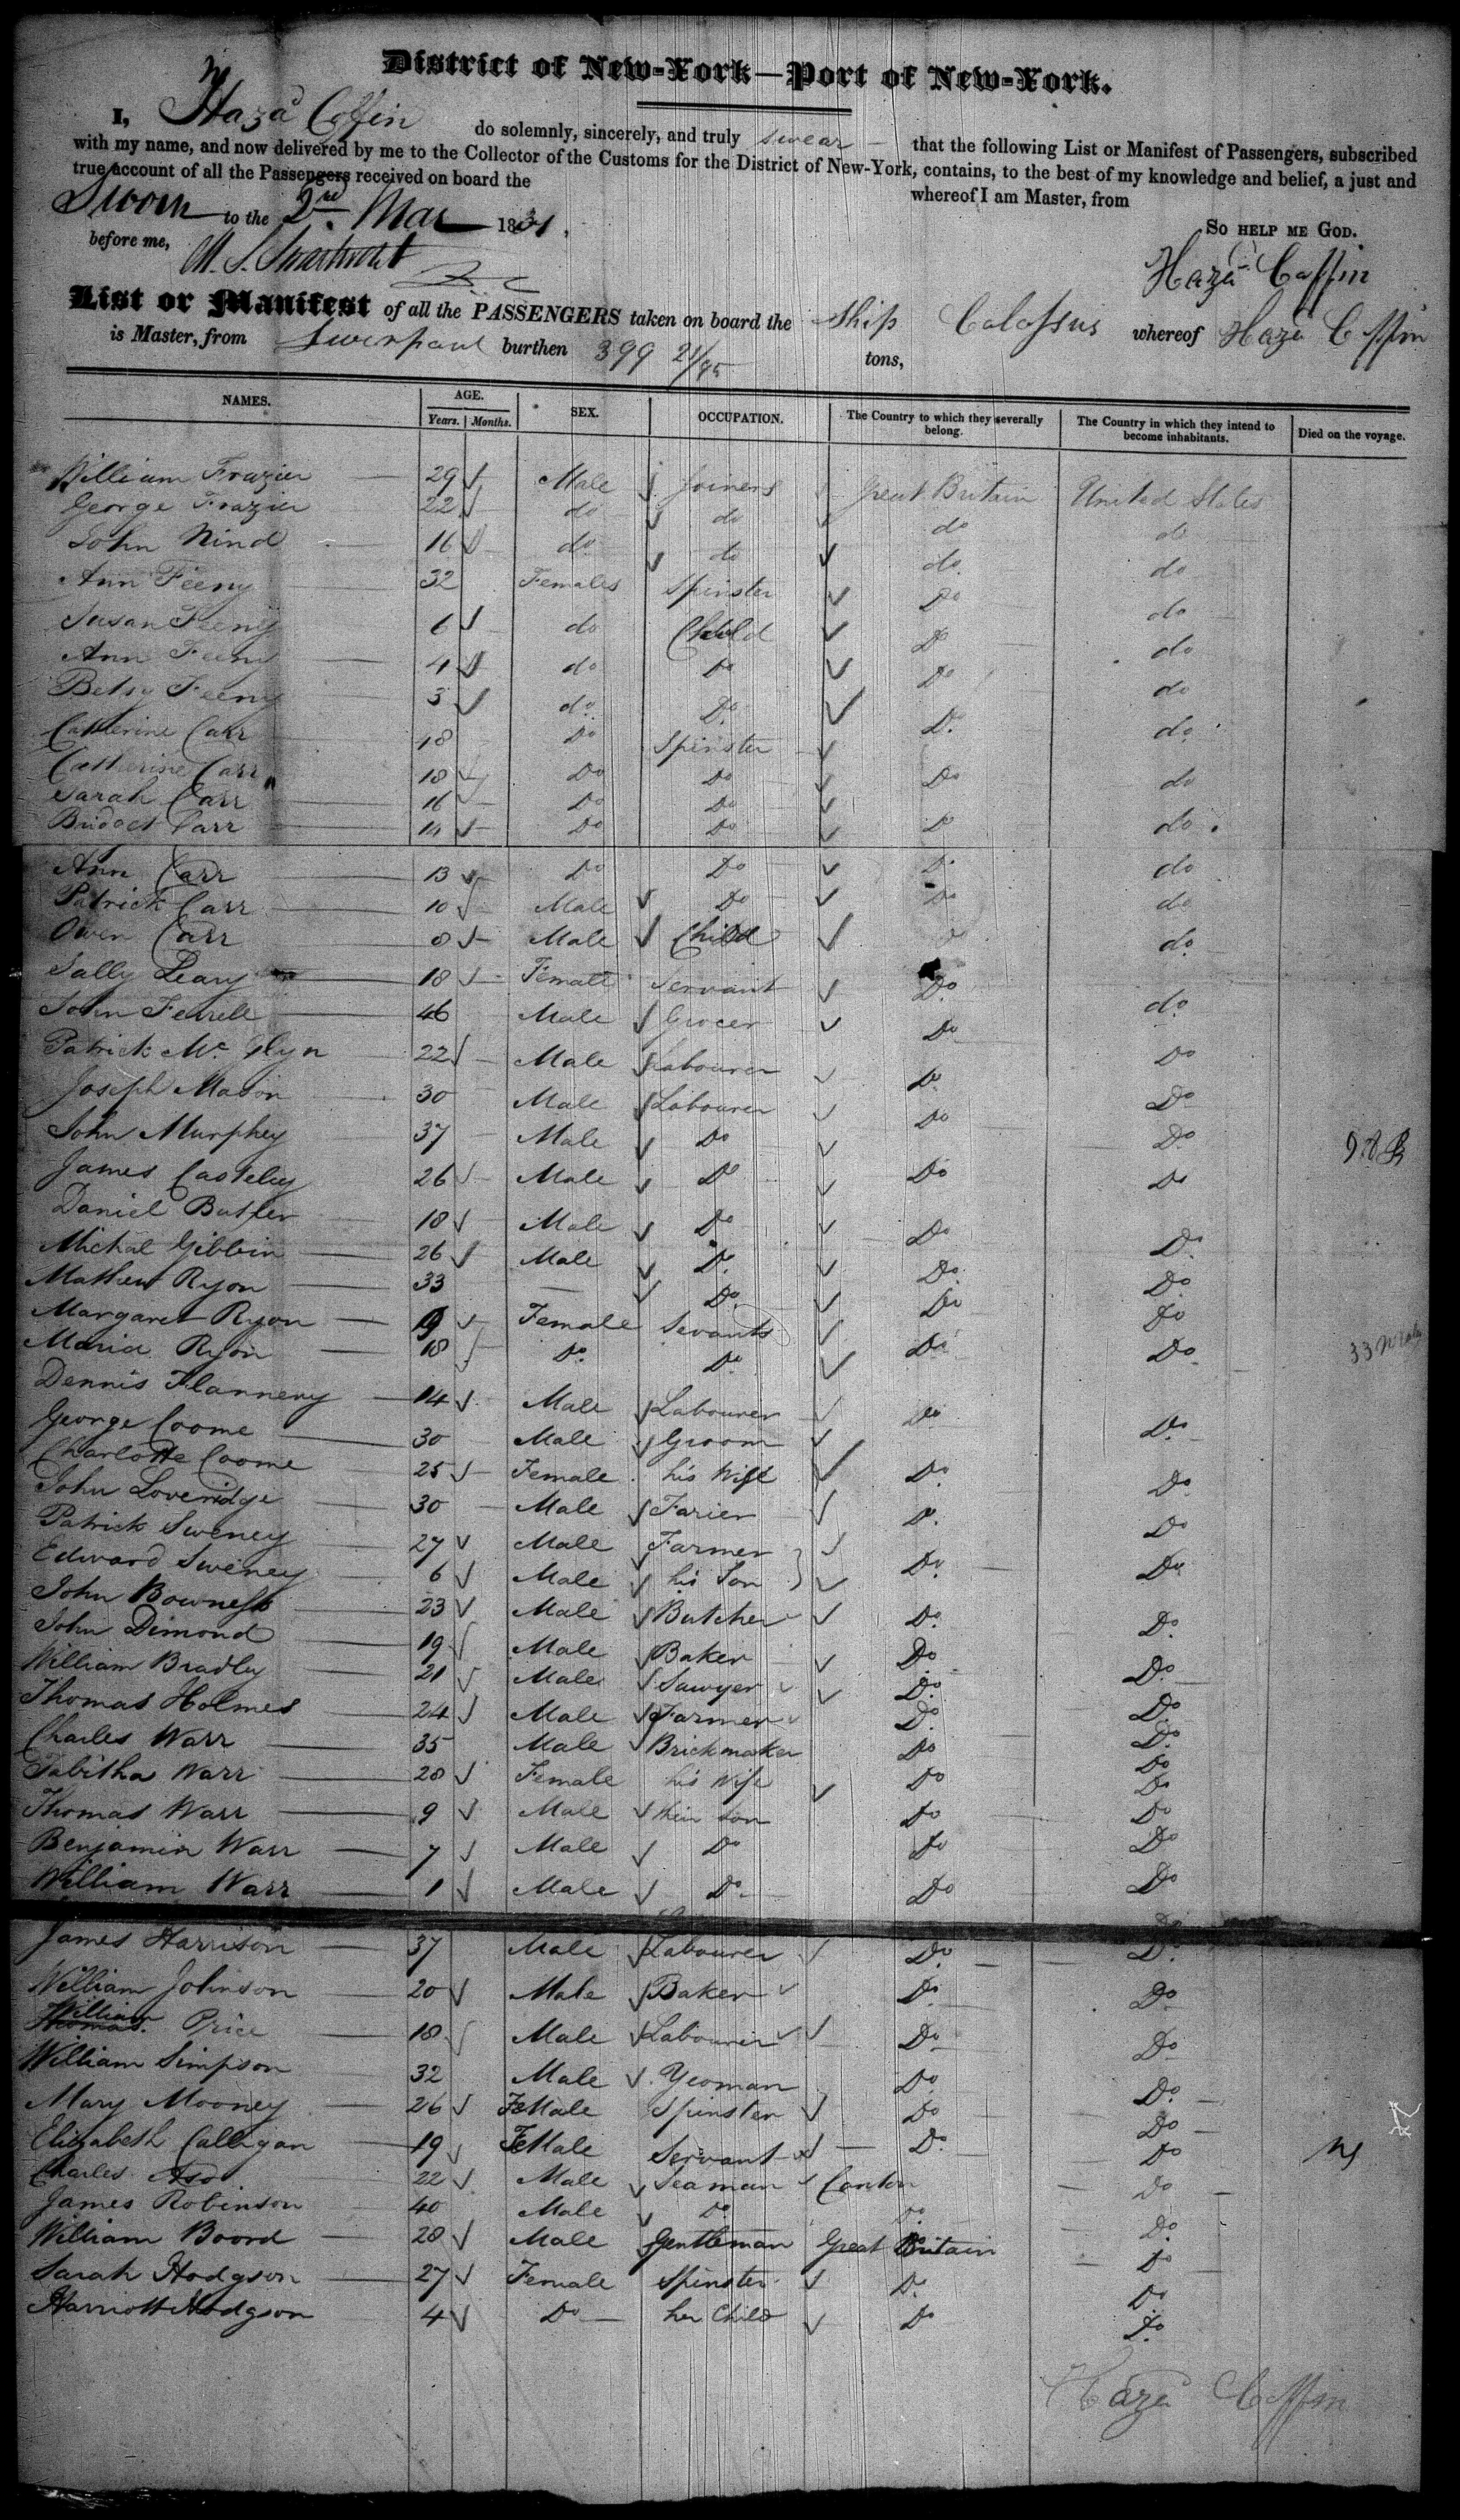 District of New-York—Port of New-York.
I, Hazd Coffin do solemnly, sincerely, and truly swear that the following List or Manifest of Passengers, subscribed
with my name, and now delivered by me to the Collector of the Customs for the District of New-York, contains, to the best of my knowledge and belief, a just and
true account of all the Passengers received on board the whereof I am Master, from
Sworn to the 2nd Mar 1831,
So help me God.
before me,
Hazd Coffin
List or Manifest of all the PASSENGERS taken on board the Ship Colossus whereof Hazd Coffin
is Master, from Liverpool burthen 399 21/95 tons,
NAMES. AGE. SEX. OCCUPATION. The Country to which they severally belong. The Country in which they intend to become inhabitants. Died on the voyage.
Years. Months.
William Frazier 29 Male Joiners Great Britain United States
George Frazier 22 do do do do
John Nind 16 do do do do
Ann Feeny 32 Females Spinster Do do
Susan Feeny 6 do Child Do do
Ann Feeny 4 do Do Do do
Betsy Feeny 3 do Do Do do
Catherine Carr 18 Do Spinster
Catherine Carr 18 Do Do Do do
Sarah Carr 16 Do Do
Bridget Carr 14 Do Do Do do
Ann Carr 13 Do Do Do do
Patrick Carr 10 Male Do Do do
Owen Carr 8 Male Child Do do
Sally Leary 18 Female Servant Do do
John Ferrell 46 Male Grocer Do Do
Patrick Mc Glyn 22 Male Labourer Do Do
Joseph Mason 30 Male Labourer Do Do
John Murphey 37 Male Do
James Casteley 26 Male Do Do Do
Daniel Butler 18 Male Do Do Do
Michal Gibbin 26 Male Do Do Do
Mathew Ryon 33 Do Do Do
Margaret Ryon 19 Female Servants Do Do
Maria Ryon 18 Do Do
Dennis Flannery 14 Male Labourer Do Do
George Coome 30 Male Groom
Charlotte Coome 25 Female his Wife Do Do
John Loveridge 30 Male Farier Do Do
Patrick Sweney 27 Male Farmer
Edward Sweney 6 Male his Son Do Do
John Bowness 23 Male Butcher Do Do
John Dimond 19 Male Baker Do Do
William Bradley 21 Male Sawyer Do Do
Thomas Holmes 24 Male Farmer Do Do
Charles Warr 35 Male Brickmaker Do Do
Tabitha Warr 28 Female his Wife Do Do
Thomas Warr 9 Male their son Do Do
Benjamin Warr 7 Male Do Do Do
William Warr 1 Male Do Do Do
James Harrison 37 Male Labourer Do Do
William Johnson 20 Male Baker Do Do
William Thomas Price 18 Male Labourer Do Do
William Simpson 32 Male Yeoman Do Do
Mary Mooney 26 FeMale Spinster Do Do
Elizabeth Calligan 19 FeMale Servant Do Do
Charles Aso 22 Male Seaman Canton Do
James Robinson 40 Male Do Do Do
William Boord 28 Male Gentleman Great Britain Do
Sarah Hodgson 27 Female Spinster Do Do
Harriott Hodgson 4 Do her Child Do Do
Hazd Coffin